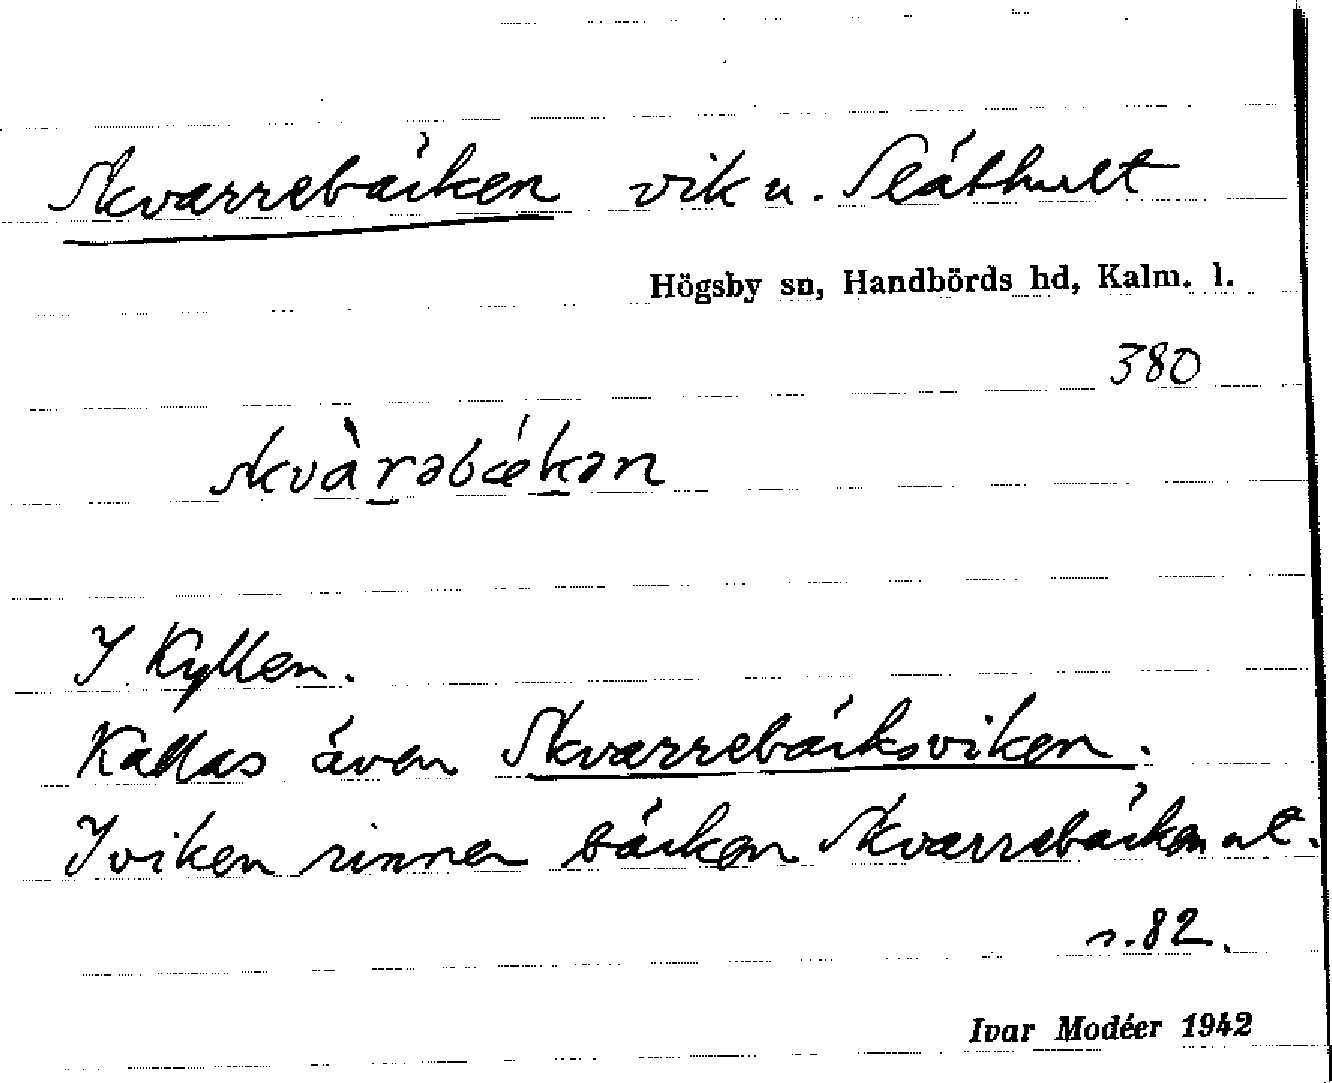 Skvarrebäcken vik u. Slåthult
Högsby sn, Handbörds hd, Kalm. l.
380
skvàrəbækən
I Kyllen.
Kallas även Skvarrebäcksviken.
I viken rinner bäcken Skvarrebäcken ut.
s. 82.
Ivar Modéer 1942